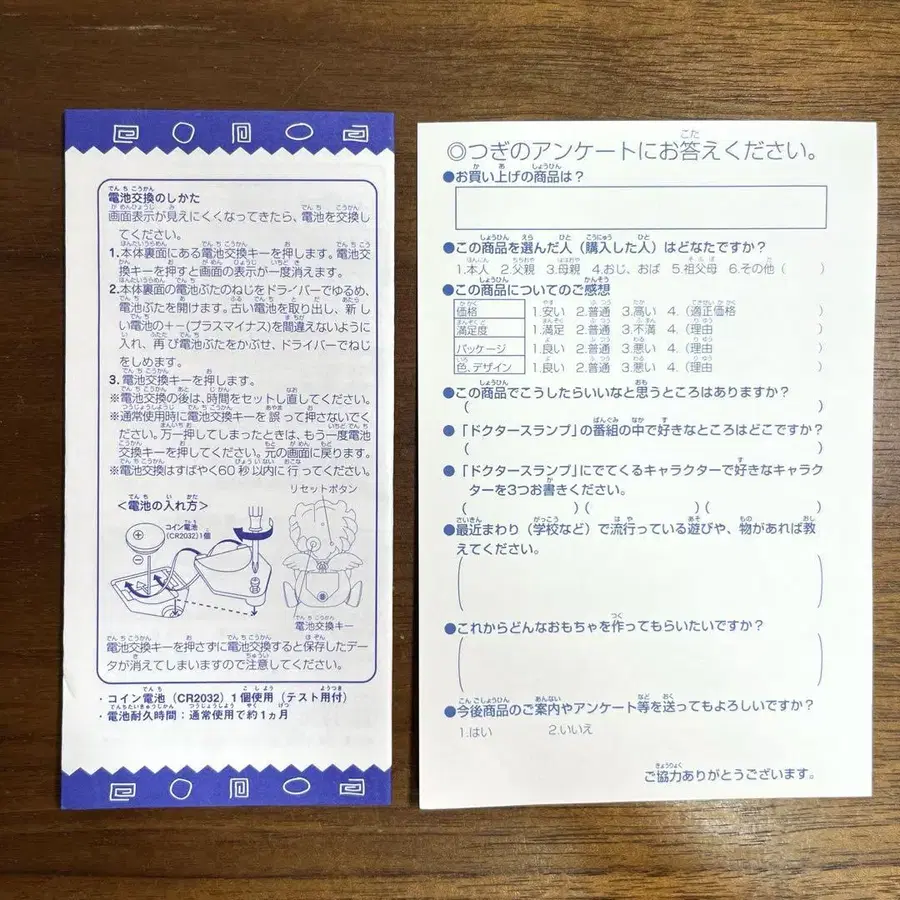 電池交換のしかた
画面表示が見えにくくなってきたら、電池を交換し
てください。
1.本体裏面にある電池交換キーを押します。電池交
換キーを押すと画面の表示が一度消えます。
2.本体裏面の電池ぶたのねじをドライバーでゆるめ、
電池ぶたを開けます。古い電池を取り出し、新し
い電池の+−(プラスマイナス)を間違えないように
入れ、再び電池ぶたをかぶせ、ドライバーでねじ
をしめます。
3.電池交換キーを押します。
※電池交換の後は、時間をセットし直してください。
※通常使用時に電池交換キーを誤って押さないでく
ださい。万一押してしまったときは、もう一度電池
交換キーを押してください。元の画面に戻ります。
※電池交換はすばやく60秒以内に行ってください。
リセットボタン
<電池の入れ方>
コイン電池
(CR2032)1個
電池交換キー
電池交換キーを押さずに電池交換すると保存したデー
タが消えてしまいますので注意してください。
・コイン電池(CR2032)1個使用(テスト用付)
・電池耐久時間:通常使用で約1ヵ月
◎つぎのアンケートにお答えください。
●お買い上げの商品は?
●この商品を選んだ人(購入した人)はどなたですか?
1.本人 2.父親 3.母親 4.おじ、おば 5.祖父母 6.その他( )
●この商品についてのご感想
価格 1.安い 2.普通 3.高い 4.(適正価格 )
満足度 1.満足 2.普通 3.不満 4.(理由 )
パッケージ 1.良い 2.普通 3.悪い 4.(理由 )
色、デザイン 1.良い 2.普通 3.悪い 4.(理由 )
●この商品でこうしたらいいなと思うところはありますか?
( )
●「ドクタースランプ」の番組の中で好きなところはどこですか?
( )
●「ドクタースランプ」にでてくるキャラクターで好きなキャラク
ターを3つお書きください。
( )( )( )
●最近まわり(学校など)で流行っている遊びや、物があれば教
えてください。
●これからどんなおもちゃを作ってもらいたいですか?
●今後商品のご案内やアンケート等を送ってもよろしいですか?
1.はい 2.いいえ
ご協力ありがとうございます。